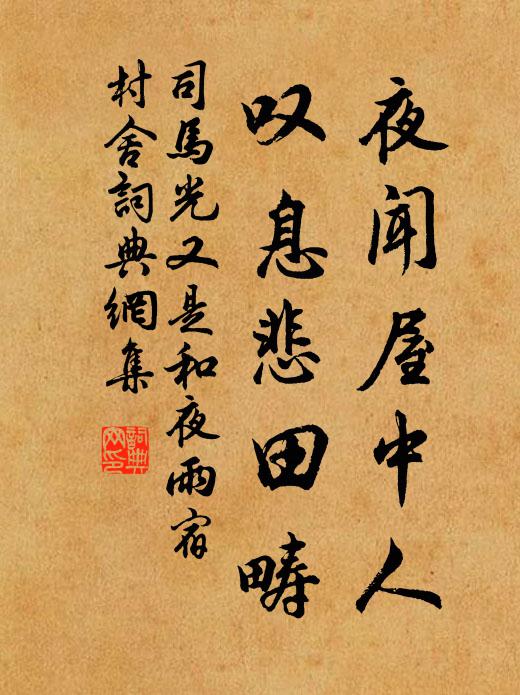 夜闻屋中人
叹息悲田畴
司馬光又是和夜雨宿
村舍詞典網集
詞典
网印